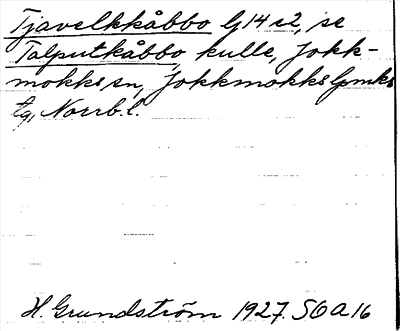 Tjavelkkåbbo lj 14 s2, se
Talputkåbbo, kulle, Jokk-
mokks sn, Jokkmokks lpmks
tg, Norrb. l.
H. Grundström 1927. SOA 16